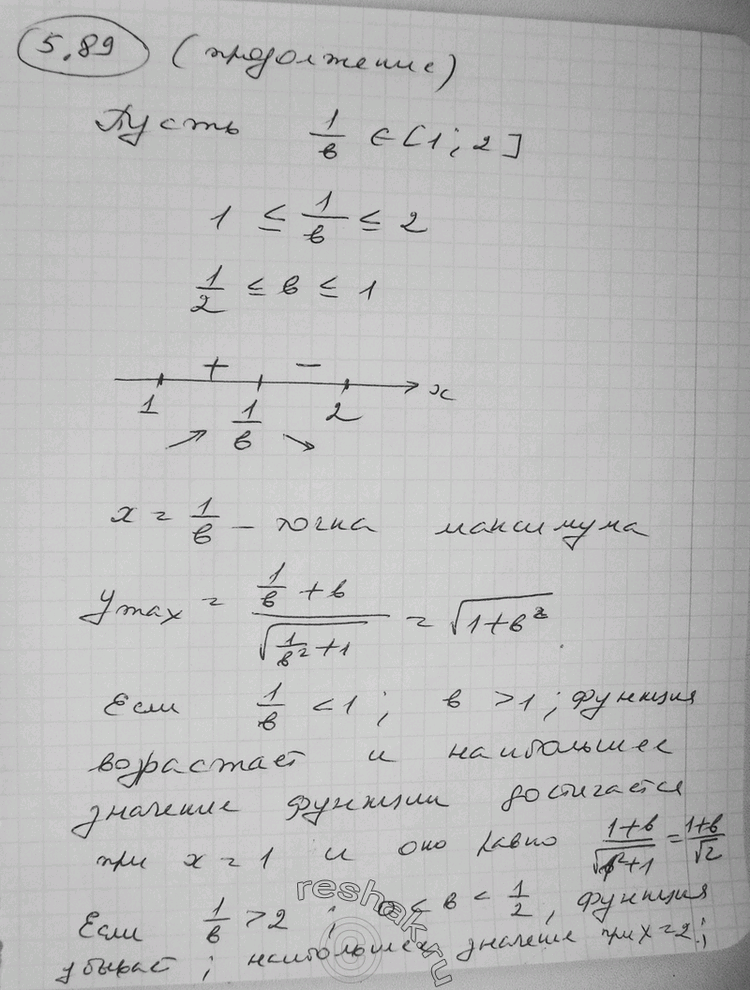 5.89 (продолжение)
Пусть 1/в ∈ [1; 2]
1 ≤ 1/в ≤ 2
1/2 ≤ в ≤ 1
+ − x
1 1/в 2
↗ ↘
x = 1/в – точка максимума
y max = (1/в + в)/√(1/в² + 1) = √(1+в²).
Если 1/в < 1; в > 1; функция
возрастает и наибольшее
значение функции достигается
при x = 1 и оно равно (1+в)/√(1²+1) = (1+в)/√2
Если 1/в > 2; 0 < в < 1/2, функция
убывает; наибольшее значение при x=2;
reshak.ru